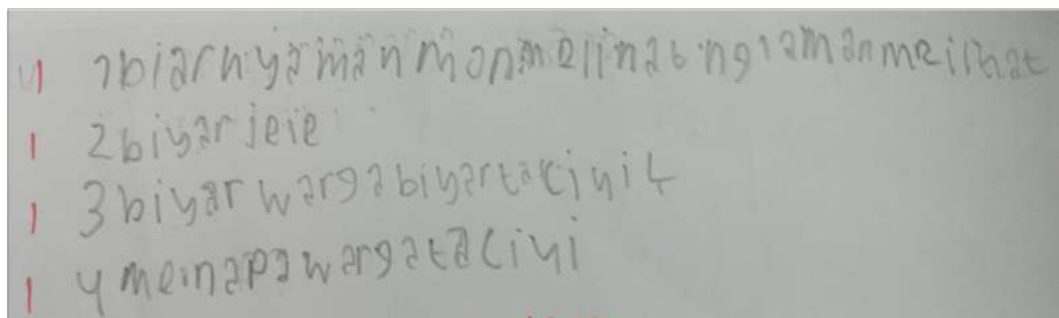 1 biarnyamanmonmelinabngiamanmeilhat
2 biyar jeie
3 biyar warga biyartaciyi4
4 meinapawargataciyi